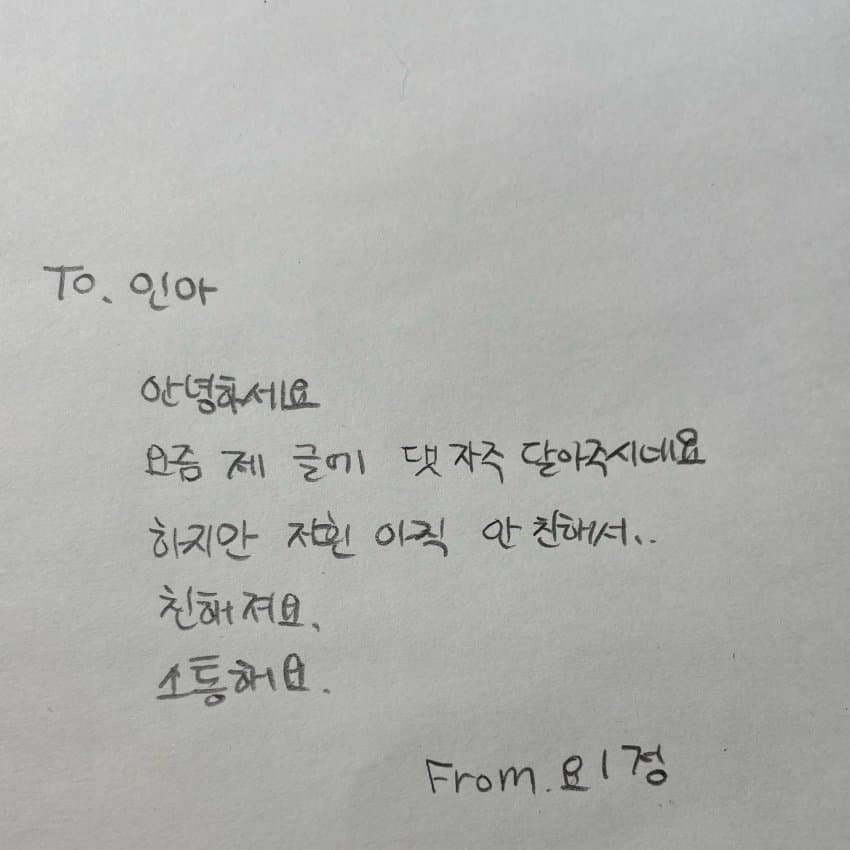 To. 인아
안녕하세요
요즘 제 글에 댓 자주 달아주시네요
하지만 저흰 아직 안 친해서..
친해져요.
소통해요.
From. 요 | 정